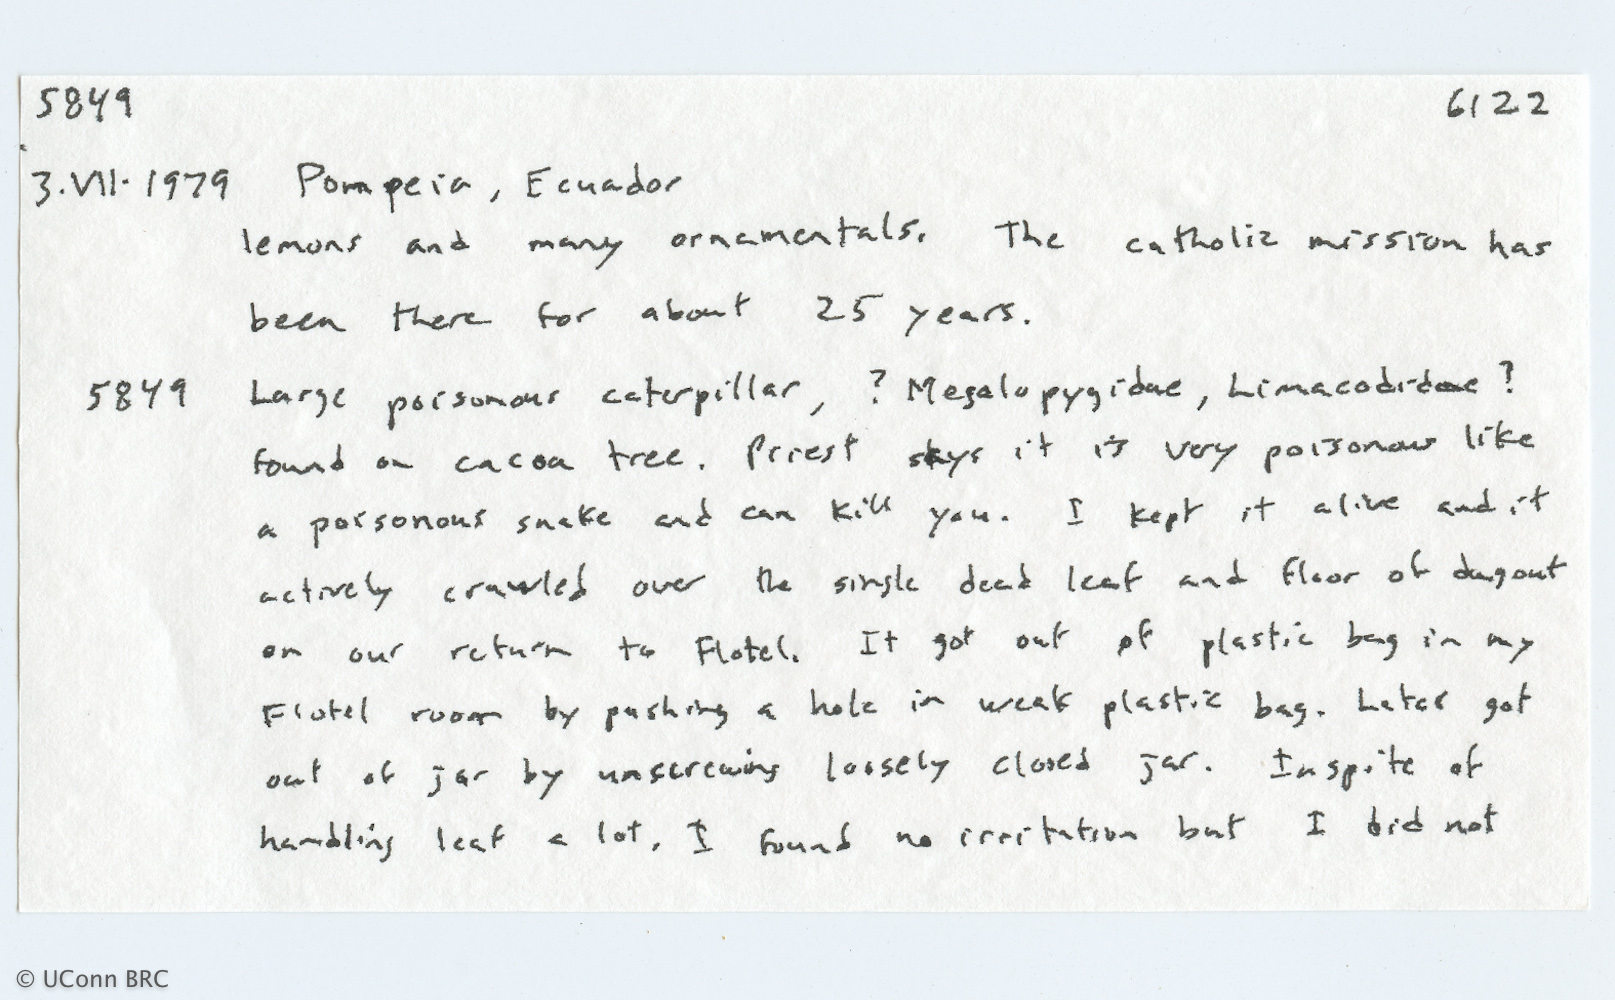 5849 6122
3.VII.1979 Pompeia, Ecuador
lemons and many ornamentals. The catholic mission has
been there for about 25 years.
5849 Large poisonous caterpillar, ? Megalopygidae, Limacodidae ?
found on cacoa tree. Priest says it is very poisonous like
a poisonous snake and can kill you. I kept it alive and it
actively crawled over the single dead leaf and floor of dugout
on our return to Flotel. It got out of plastic bag in my
Flotel room by pushing a hole in weak plastic bag. Later got
out of jar by unscrewing loosely closed jar. Inspite of
handling leaf a lot, I found no irritation but I did not
© UConn BRC